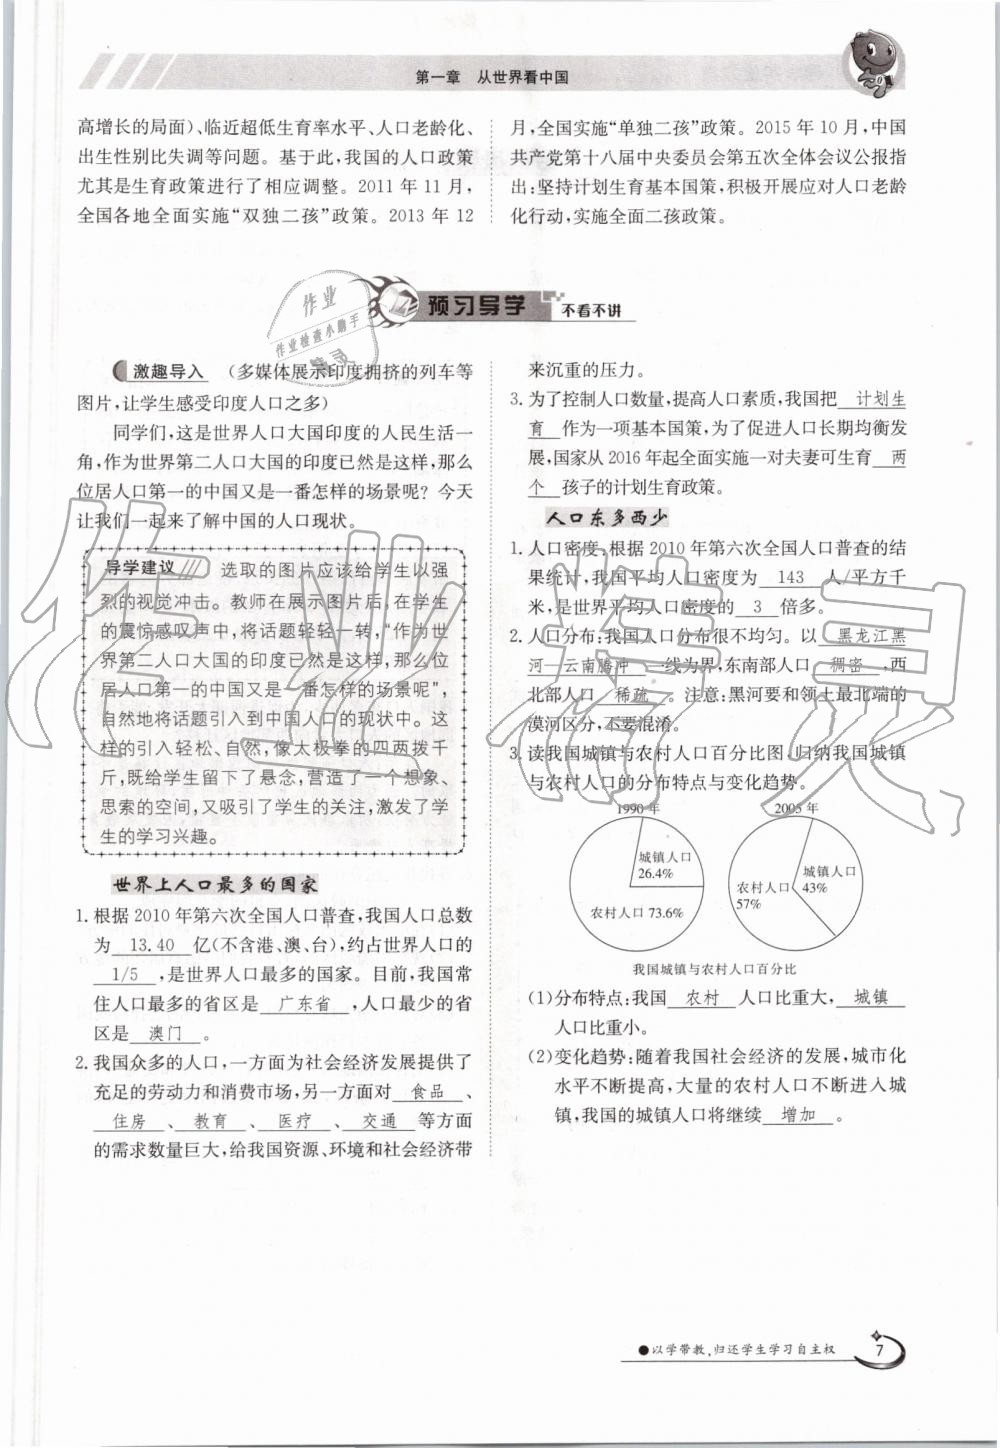 第一章 从世界看中国
高增长的局面)、临近超低生育率水平、人口老龄化、
出生性别比失调等问题。基于此,我国的人口政策
尤其是生育政策进行了相应调整。2011 年 11 月,
全国各地全面实施“双独二孩”政策。2013 年 12
月,全国实施“单独二孩”政策。2015 年 10 月,中国
共产党第十八届中央委员会第五次全体会议公报指
出:坚持计划生育基本国策,积极开展应对人口老龄
化行动,实施全面二孩政策。
预习导学 不看不讲
作业
作业检查小助手
激趣导入 (多媒体展示印度拥挤的列车等
图片,让学生感受印度人口之多)
同学们,这是世界人口大国印度的人民生活一
角,作为世界第二人口大国的印度已然是这样,那么
位居人口第一的中国又是一番怎样的场景呢?今天
让我们一起来了解中国的人口现状。
导学建议 选取的图片应该给学生以强
烈的视觉冲击。教师在展示图片后,在学生
的震惊感叹声中,将话题轻轻一转,“作为世
界第二人口大国的印度已然是这样,那么位
居人口第一的中国又是一番怎样的场景呢”,
自然地将话题引入到中国人口的现状中。这
样的引入轻松、自然,像太极拳的四两拨千
斤,既给学生留下了悬念,营造了一个想象、
思索的空间,又吸引了学生的关注,激发了学
生的学习兴趣。
世界上人口最多的国家
1. 根据 2010 年第六次全国人口普查,我国人口总数
为 13.40 亿(不含港、澳、台),约占世界人口的
1/5 ,是世界人口最多的国家。目前,我国常
住人口最多的省区是 广东省 ,人口最少的省
区是 澳门 。
2. 我国众多的人口,一方面为社会经济发展提供了
充足的劳动力和消费市场,另一方面对 食品 、
住房 、 教育 、 医疗 、 交通 等方面
的需求数量巨大,给我国资源、环境和社会经济带
来沉重的压力。
3. 为了控制人口数量,提高人口素质,我国把 计划生
育 作为一项基本国策,为了促进人口长期均衡发
展,国家从 2016 年起全面实施一对夫妻可生育 两
个 孩子的计划生育政策。
人口东多西少
1. 人口密度:根据 2010 年第六次全国人口普查的结
果统计,我国平均人口密度为 143 人/平方千
米,是世界平均人口密度的 3 倍多。
2. 人口分布:我国人口分布很不均匀。以 黑龙江黑
河—云南腾冲 一线为界,东南部人口 稠密 ,西
北部人口 稀疏 。注意:黑河要和领土最北端的
漠河区分,不要混淆。
3. 读我国城镇与农村人口百分比图,归纳我国城镇
与农村人口的分布特点与变化趋势。
1990 年
城镇人口
26.4%
农村人口 73.6%
2005 年
城镇人口
43%
农村人口
57%
我国城镇与农村人口百分比
(1)分布特点:我国 农村 人口比重大, 城镇
人口比重小。
(2)变化趋势:随着我国社会经济的发展,城市化
水平不断提高,大量的农村人口不断进入城
镇,我国的城镇人口将继续 增加 。
作业精灵
●以学带教,归还学生学习自主权
7